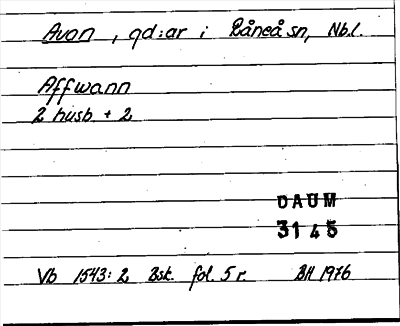 Avan, gd:ar i Råneå sn, Nb.l.
Affwann
2 husb + 2
DAUM
3145
Vb 1543:2 Bsk. fol. 5 r. BH 1976